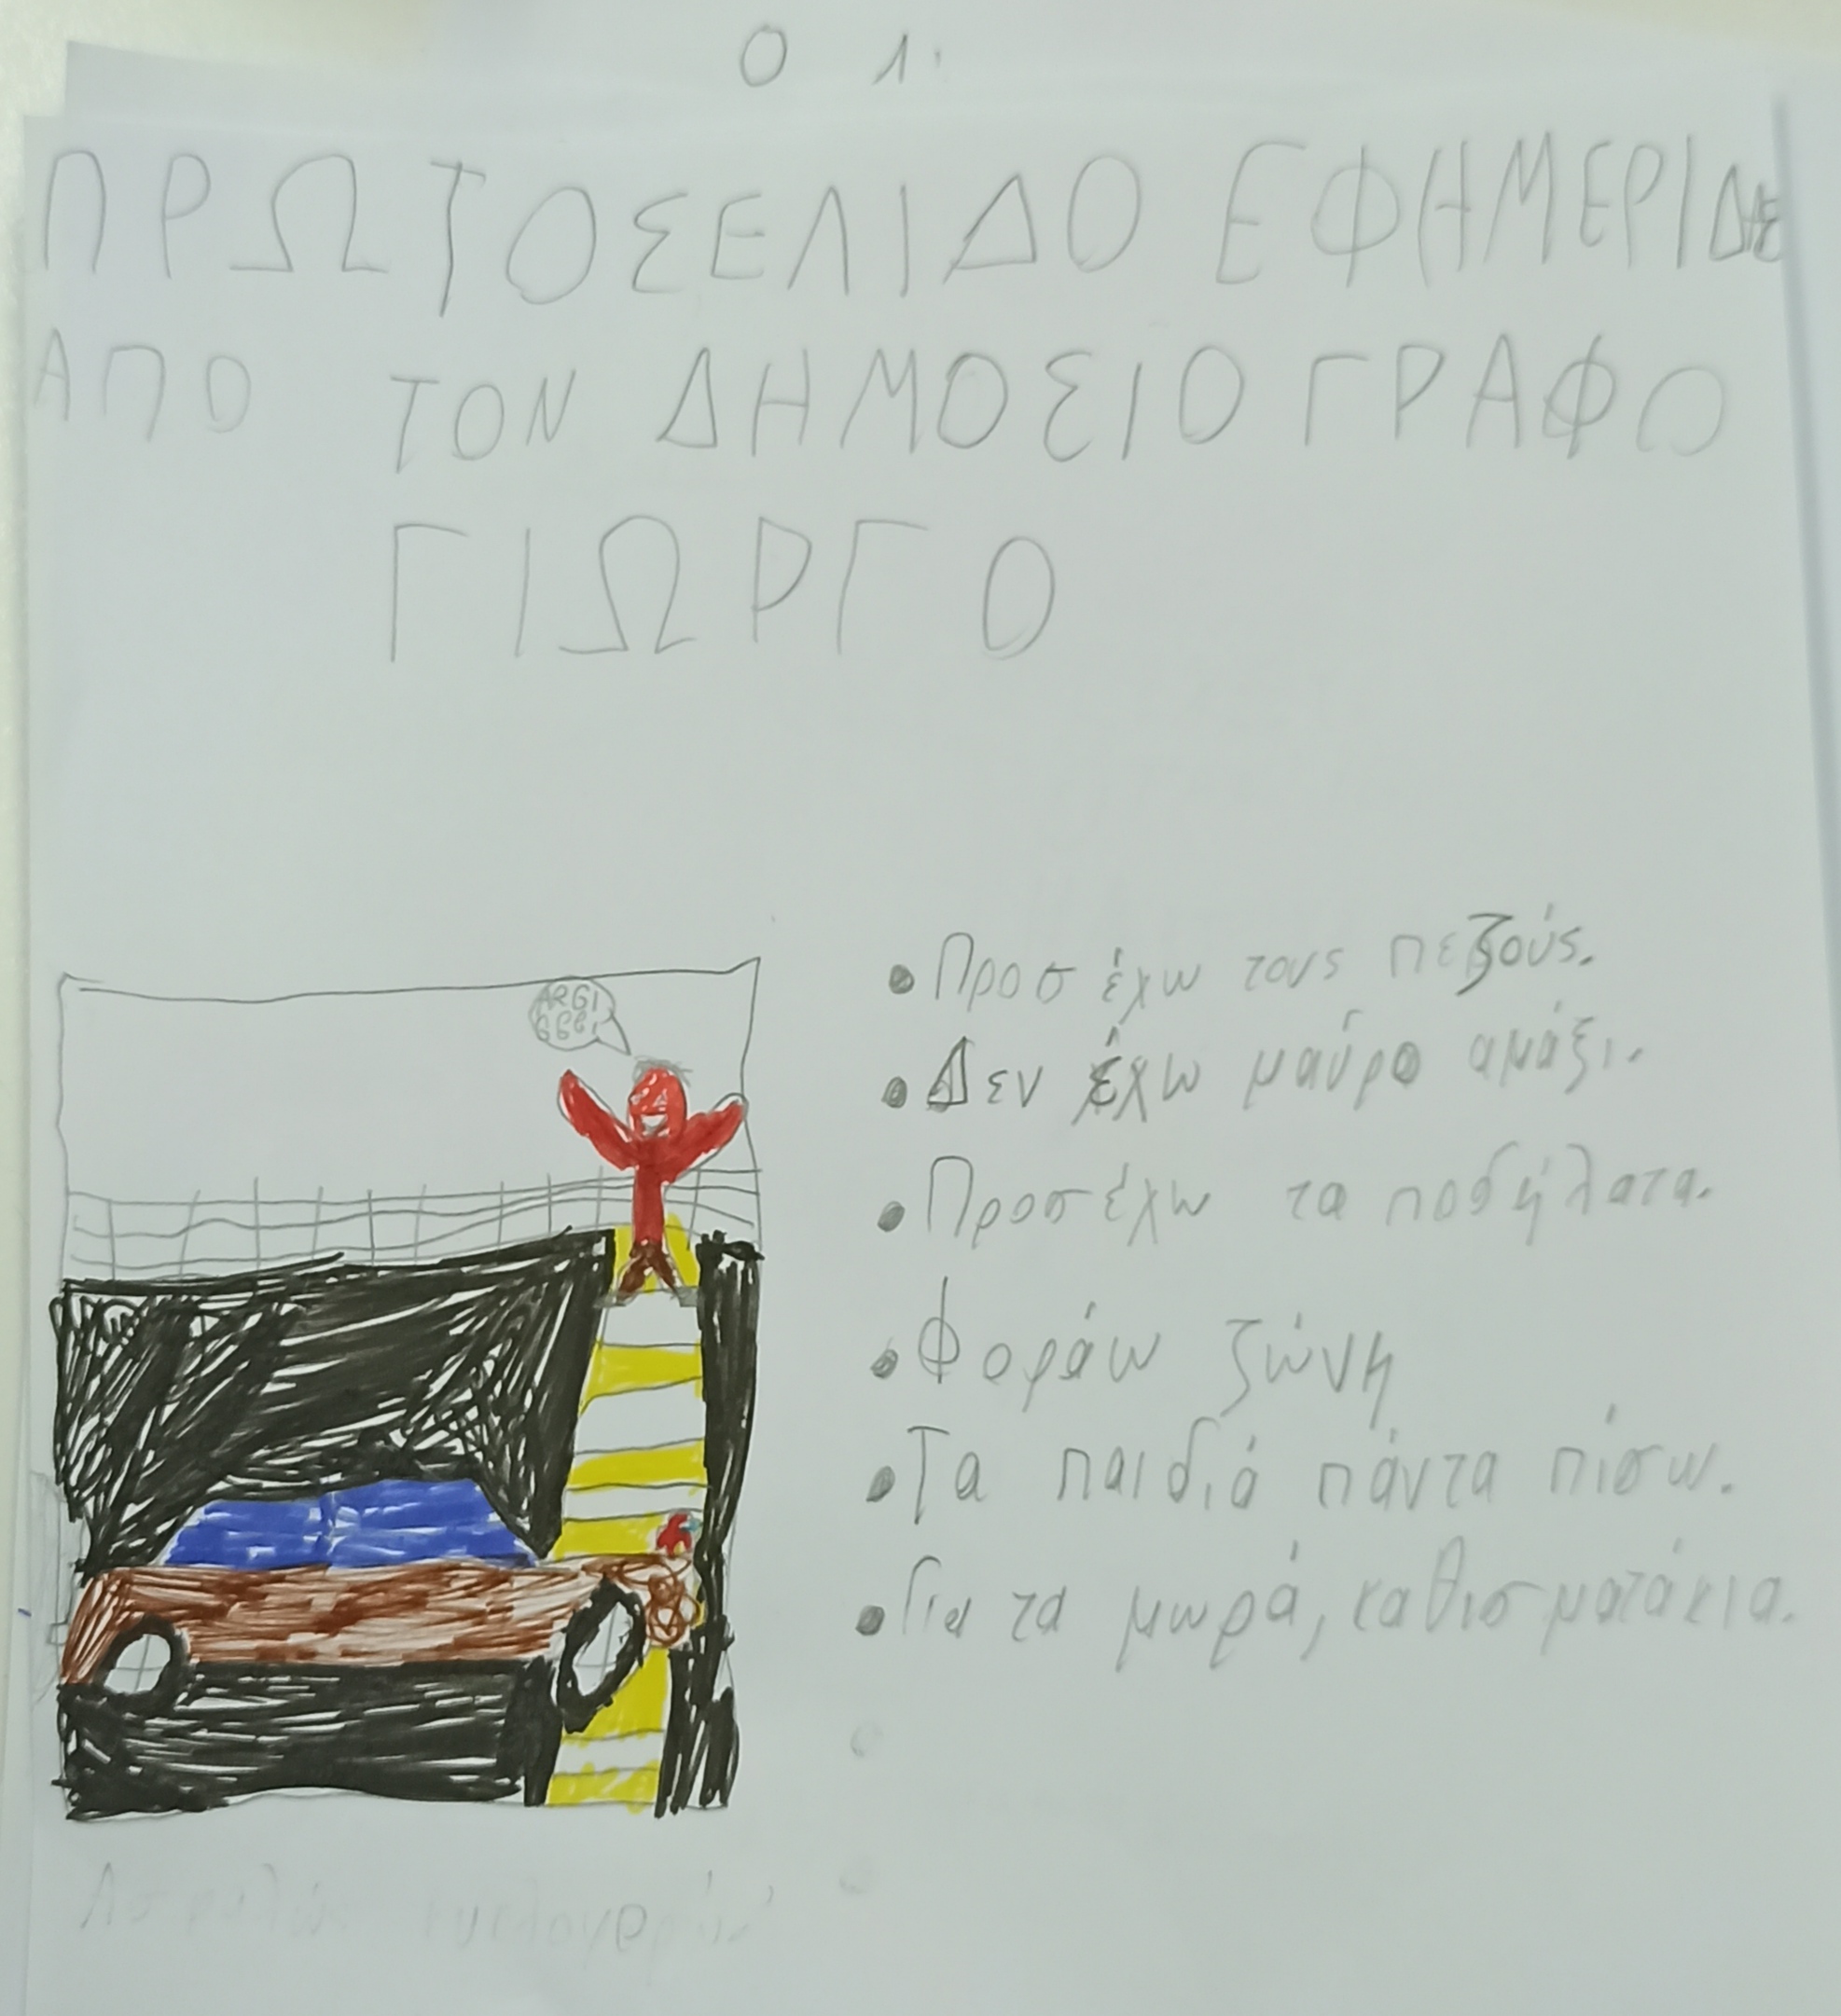 Ο 1.
ΠΡΩΤΟΣΕΛΙΔΟ ΕΦΗΜΕΡΙΔΕ
ΑΠΟ ΤΟΝ ΔΗΜΟΣΙΟΓΡΑΦΟ
ΓΙΩΡΓΟ
• Προσέχω τους πεζούς.
• Δεν έχω μαύρο αμάξι.
• Προσέχω τα ποδήλατα.
• Φοράω ζώνη
• Τα παιδιά πάντα πίσω.
• Για τα μωρά, καθισματάκια.